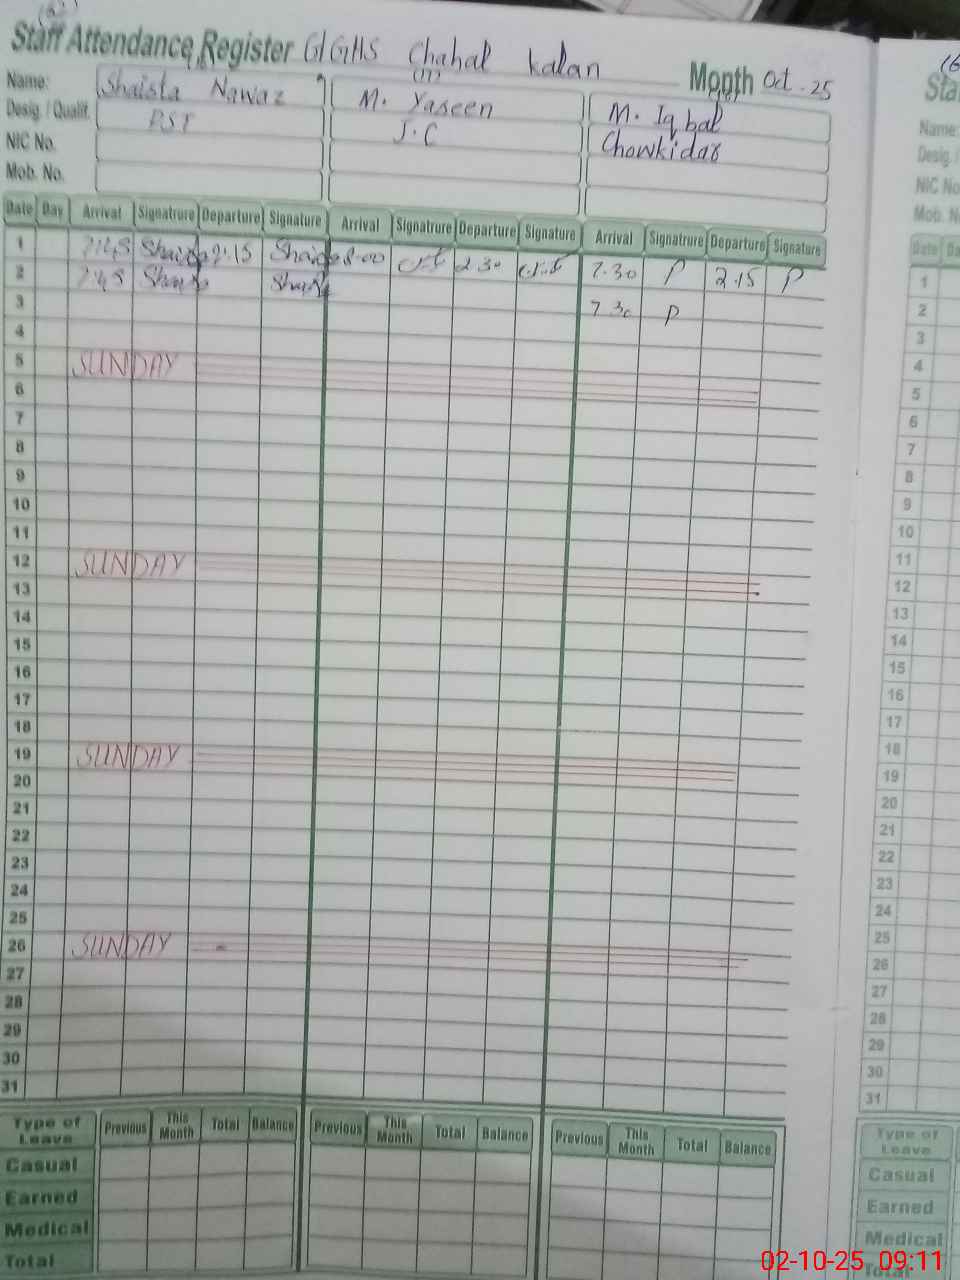 Staff Attendance Register GGHS Chahal Kalan Month Oct. 25
Name: Shaista Nawaz M. Yaseen M. Iqbal
Desig. / Qualif. PST J.C Chowkidar
NIC No.
Mob. No.
Date Day Arrival Signatrure Departure Signature Arrival Signatrure Departure Signature Arrival Signatrure Departure Signature
1 7:45 Shaista 2.15 Shaista 8.00 2 30 7.30 P 2.15 P
2 7:45 Shaista Shaista 7 30 P
3
4
5 SUNDAY
6
7
8
9
10
11
12 SUNDAY
13
14
15
16
17
18
19 SUNDAY
20
21
22
23
24
25
26 SUNDAY
27
28
29
30
31
Type of Leave Previous This Month Total Balance Previous This Month Total Balance Previous This Month Total Balance
Casual
Earned
Medical
Total
Name:
Desig. /
NIC No
Mob. N
Date
1
2
3
4
5
6
7
8
9
10
11
12
13
14
15
16
17
18
19
20
21
22
23
24
25
26
27
28
29
30
31
Type of Leave
Casual
Earned
Medical
Total
02-10-25 09:11